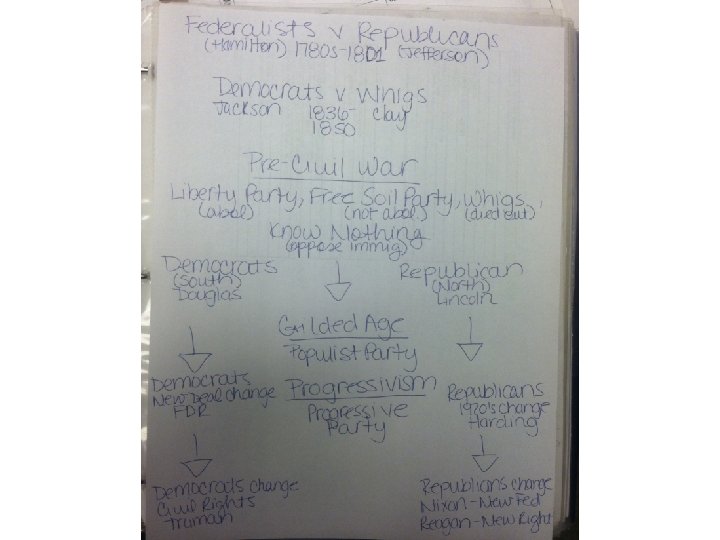 Federalists v Republicans
(Hamilton) 1780s-1801 (Jefferson)
Democrats v Whigs
Jackson 1836- Clay
1850
Pre-Civil War
Liberty Party, Free Soil Party, Whigs,
(abol) (not abol) (died out)
Know Nothing
(oppose immig)
Democrats Republican
(South) (North)
Douglas Lincoln
Gilded Age
Populist Party
Democrats Progressivism Republicans
New Deal change Progressive 1920's change
FDR Party Harding
Democrats change Republicans change
Civil Rights Nixon-New Fed
Truman Reagan-New Right